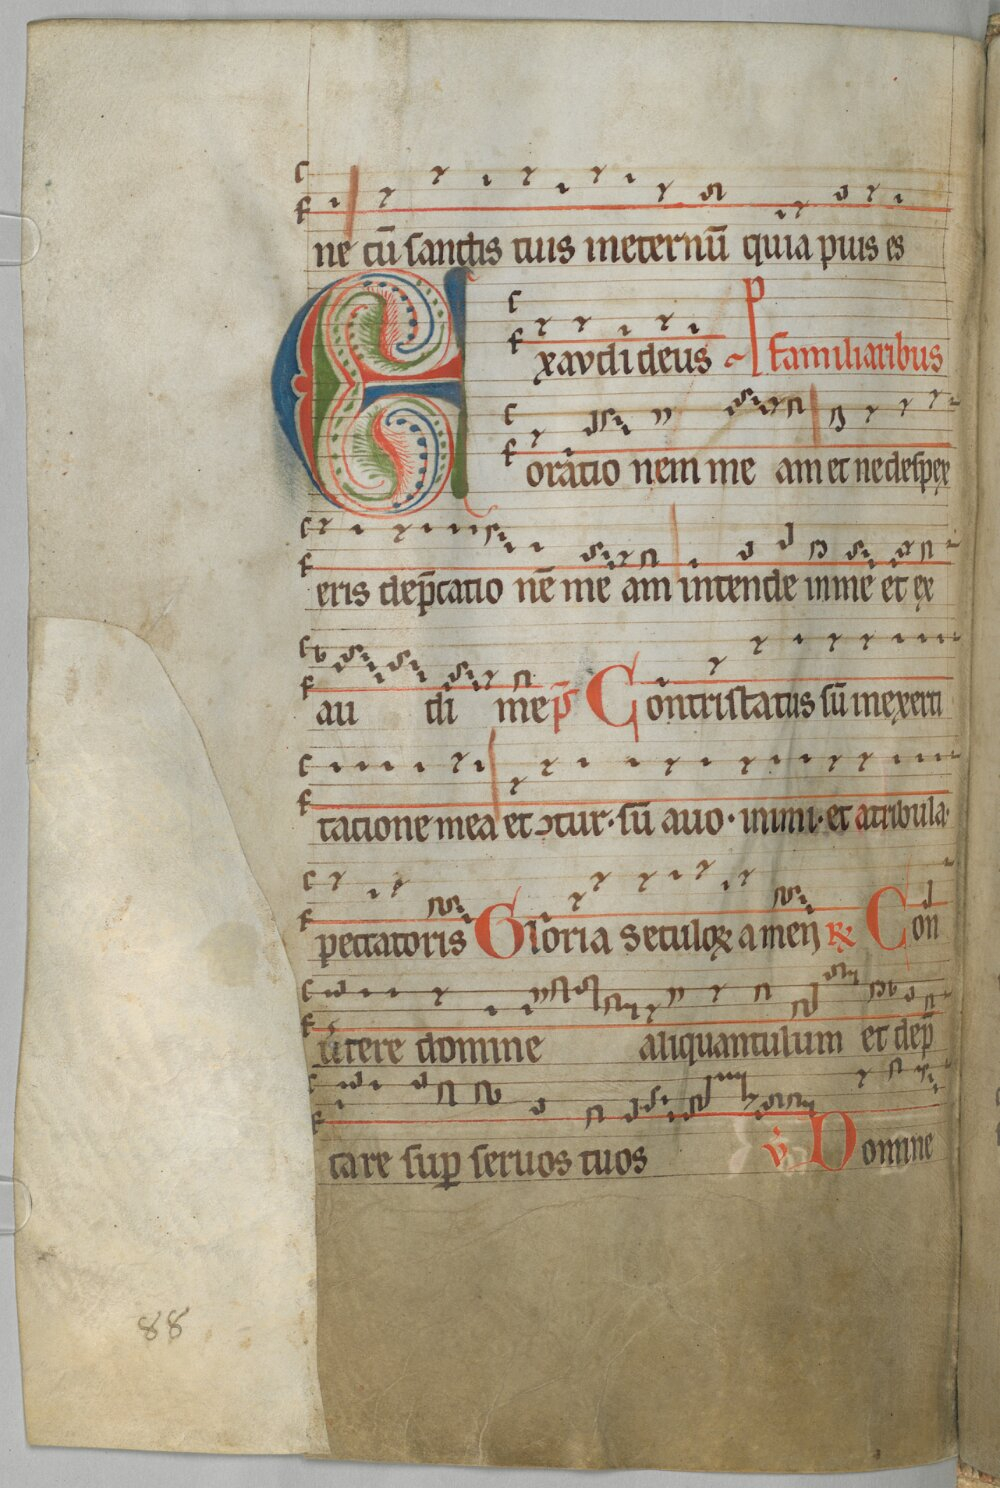 ne cū sanctis tuis ineternū quia pius es
Exaudi deus Familiaribus
oratio nem me am et ne despex
eris dep̄catio nē me am intende in me et ex
au di me p̄ Contristatus sū in exerci
tatione mea et ↄtur · sū a uo · inimi · et a tribula ·
peccatoris Gloria seculoꝝ amen ℟ Con
uertere domine aliquantulum et dep̄
care suꝑ seruos tuos ℣ Domine
88